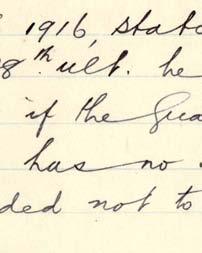 1916, stat
8th ult. he
if the Gua
has no
ded not to